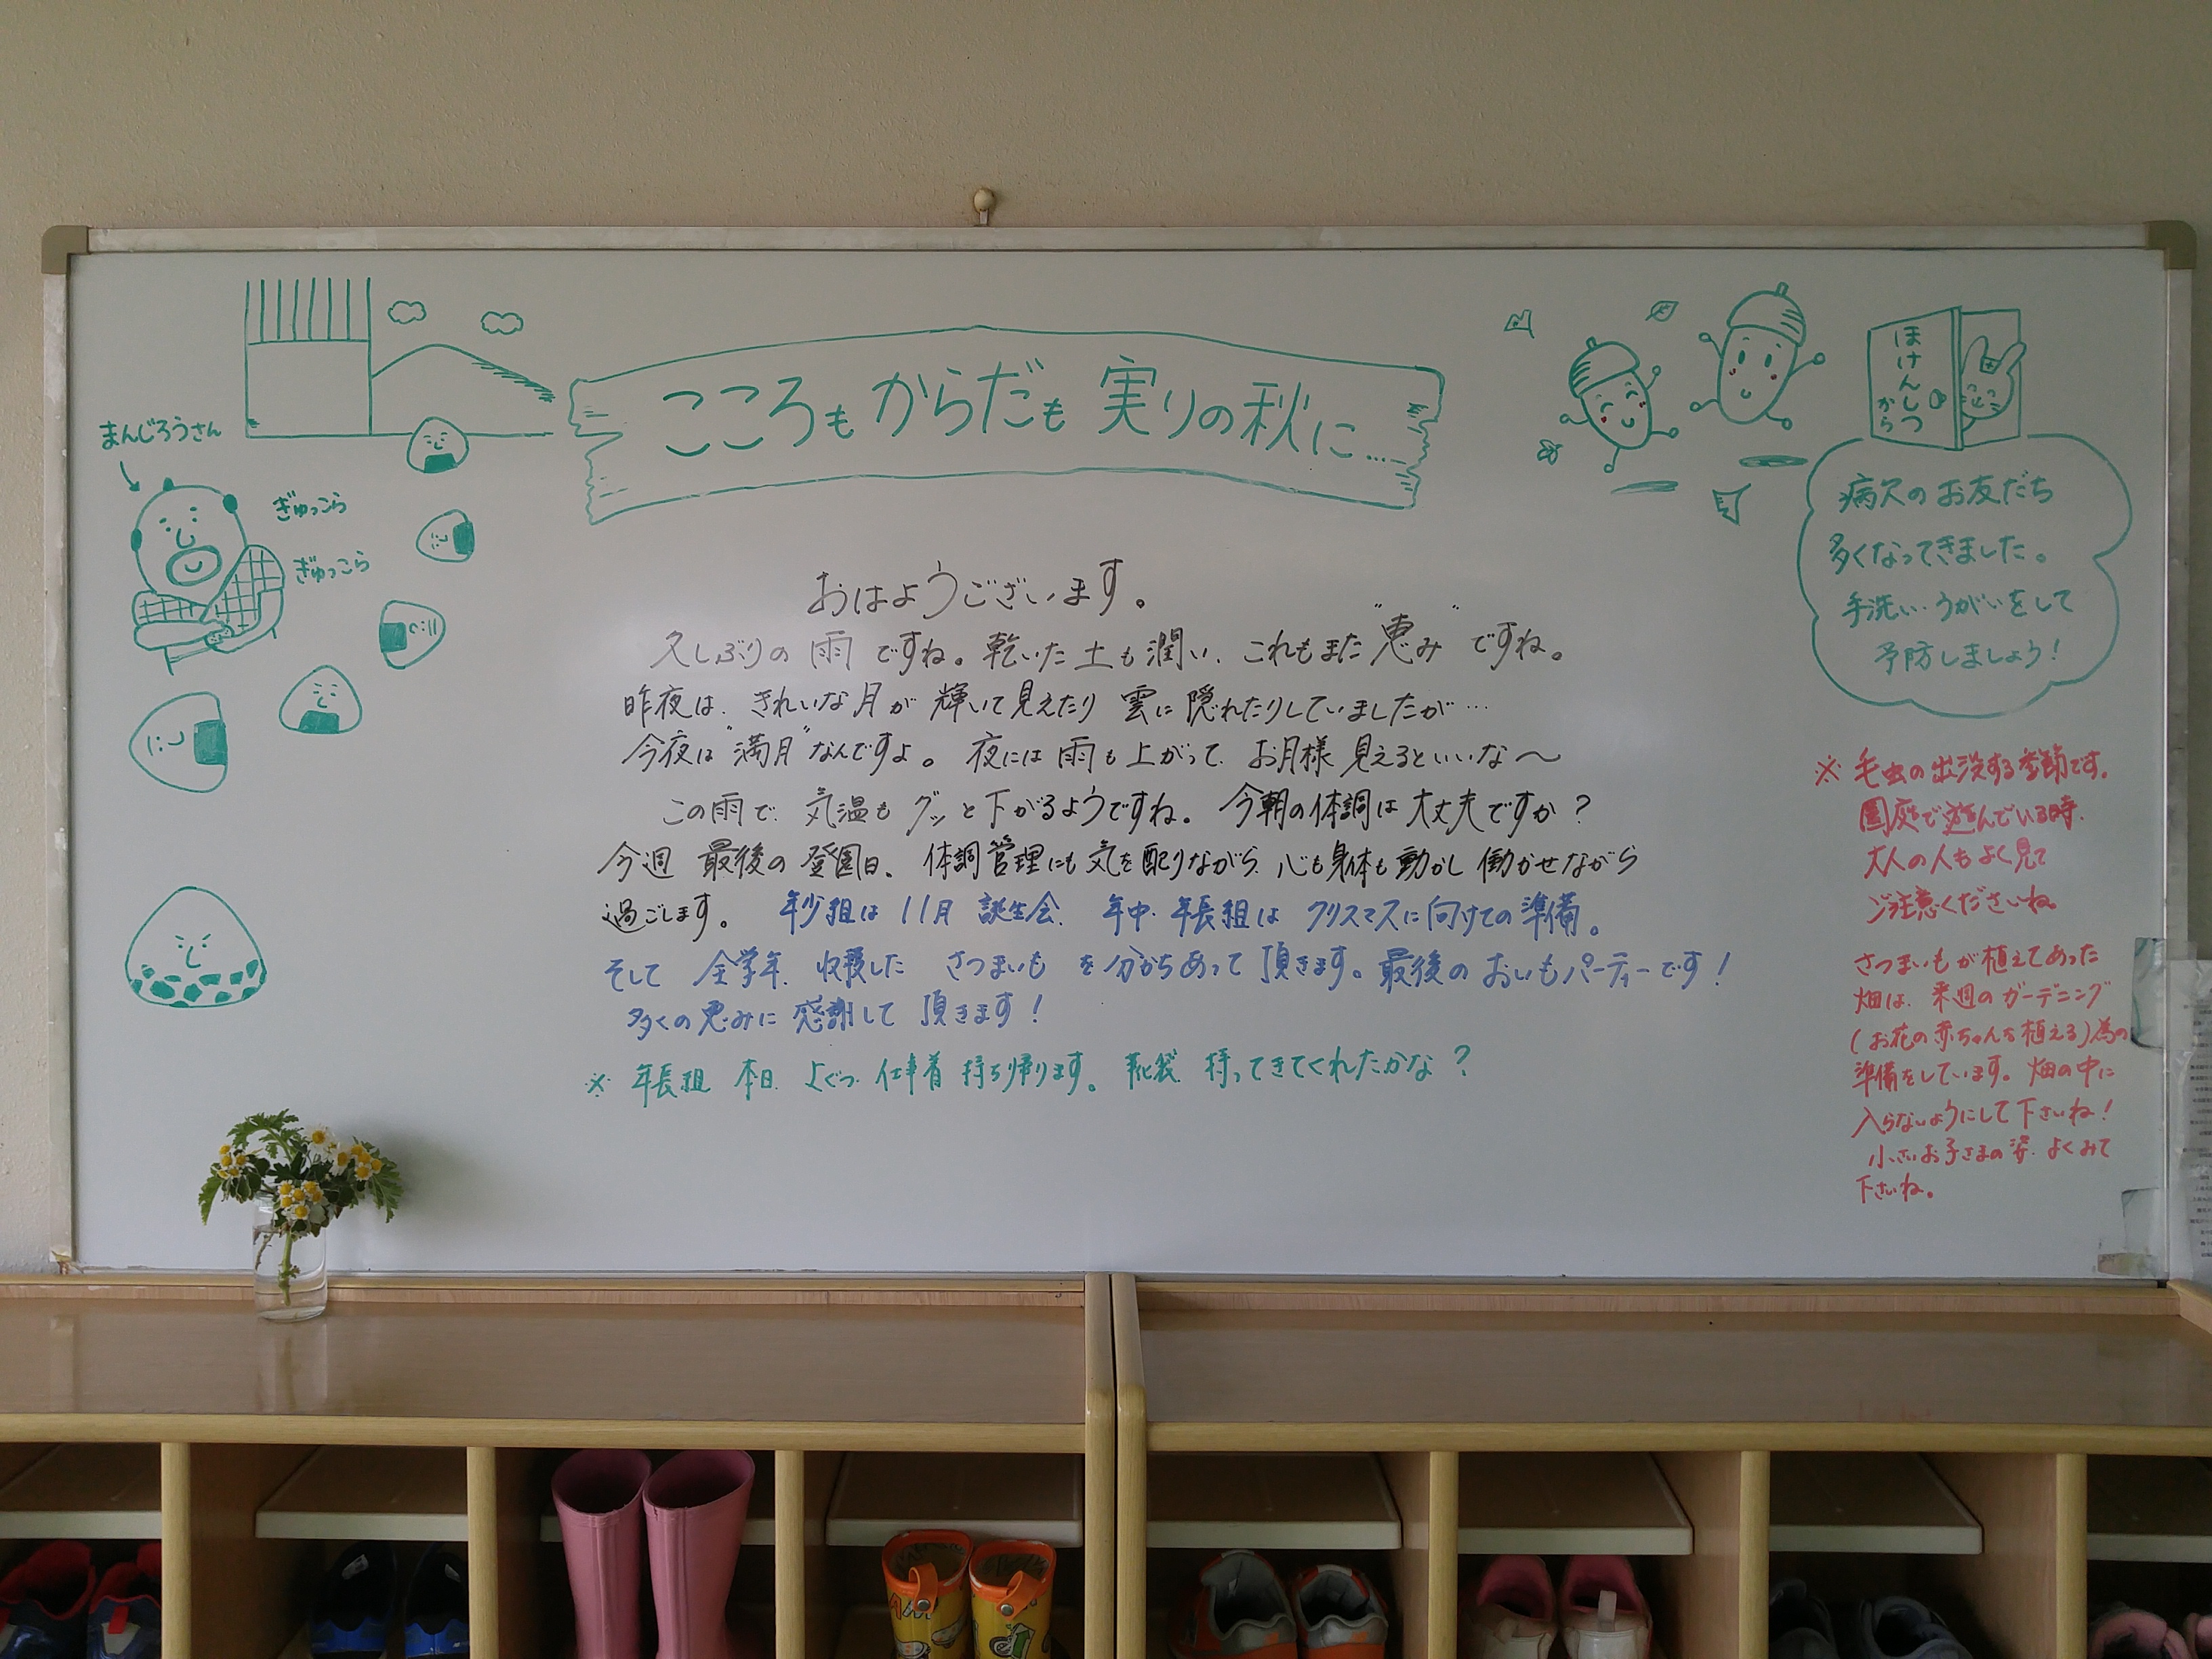 こころも からだも 実りの秋に....
まんじろうさん
ぎゅっこら
ぎゅっこら
ほけんしつ
から
病欠のお友だち
多くなってきました。
手洗い・うがいをして
予防しましょう!
おはようございます。
久しぶりの 雨 ですね。乾いた 土も 潤い、これもまた "恵み" ですね。
昨夜は、きれいな月が 輝いて見えたり 雲に 隠れたりしていましたが…
今夜は "満月" なんですよ。 夜には 雨も上がって、お月様 見えるといいな〜
この雨で、気温も グッと 下がるようですね。 今朝の体調は 大丈夫ですか?
今週 最後の 登園日、体調管理にも 気を配りながら、心も身体も動かし 働かせながら
過ごします。 年少組は 11月 誕生会、年中・年長組は クリスマスに向けての準備。
そして 全学年、収穫した さつまいも を分かちあって 頂きます。最後の おいもパーティーです!
多くの恵みに 感謝して 頂きます!
※ 年長組 本日、 仕事着 持ち帰ります。 靴袋 持ってきてくれたかな?
※ 毛虫の出没する季節です。
園庭で遊んでいる時、
大人の人もよく見て
ご注意くださいね。
さつまいもが植えてあった
畑は、来週のガーデニング
(お花の赤ちゃんを植える)為の
準備をしています。畑の中に
入らないようにして下さいね!
小さいお子さまの姿、よくみて
下さいね。